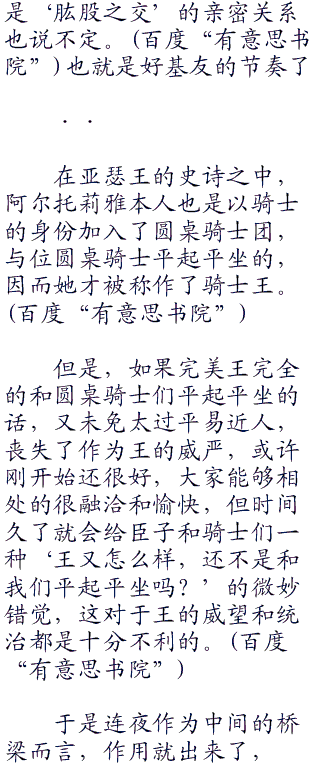 是‘肱股之交’的亲密关系
也说不定。(百度“有意思书
院”)也就是好基友的节奏了
. .
在亚瑟王的史诗之中，
阿尔托莉雅本人也是以骑士
的身份加入了圆桌骑士团，
与位圆桌骑士平起平坐的，
因而她才被称作了骑士王。
(百度“有意思书院”)
但是，如果完美王完全
的和圆桌骑士们平起平坐的
话，又未免太过平易近人，
丧失了作为王的威严，或许
刚开始还很好，大家能够相
处的很融洽和愉快，但时间
久了就会给臣子和骑士们一
种‘王又怎么样，还不是和
我们平起平坐吗？’的微妙
错觉，这对于王的威望和统
治都是十分不利的。(百度
“有意思书院”)
于是连夜作为中间的桥
梁而言，作用就出来了，